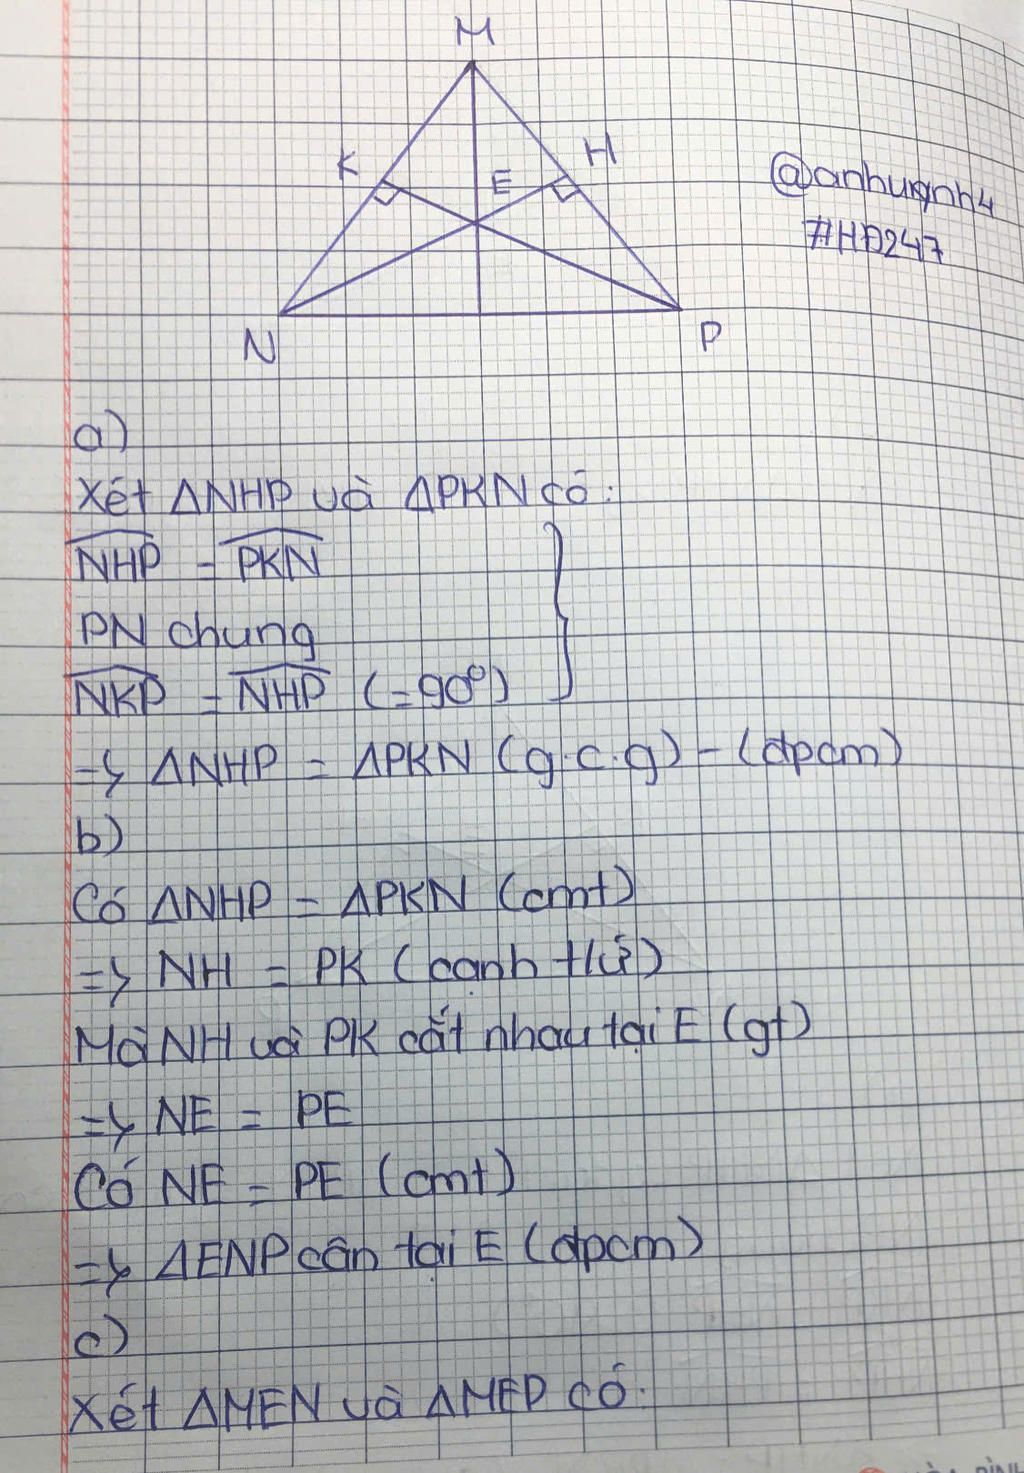 M
K
H
E
@anhuynh4
#HĐ247
N
P
a)
Xét ΔNHP và ΔPKN có:
NHP = PKN
PN chung
NKP = NHP (=90°)
=> ΔNHP = ΔPKN (g.c.g) - (đpcm)
b)
Có ΔNHP = ΔPKN (cmt)
=> NH = PK (cạnh tứ)
Mà NH và PK cắt nhau tại E (gt)
=> NE = PE
Có NE = PE (cmt)
=> ΔENP cân tại E (đpcm)
c)
Xét ΔMEN và ΔMEP có: